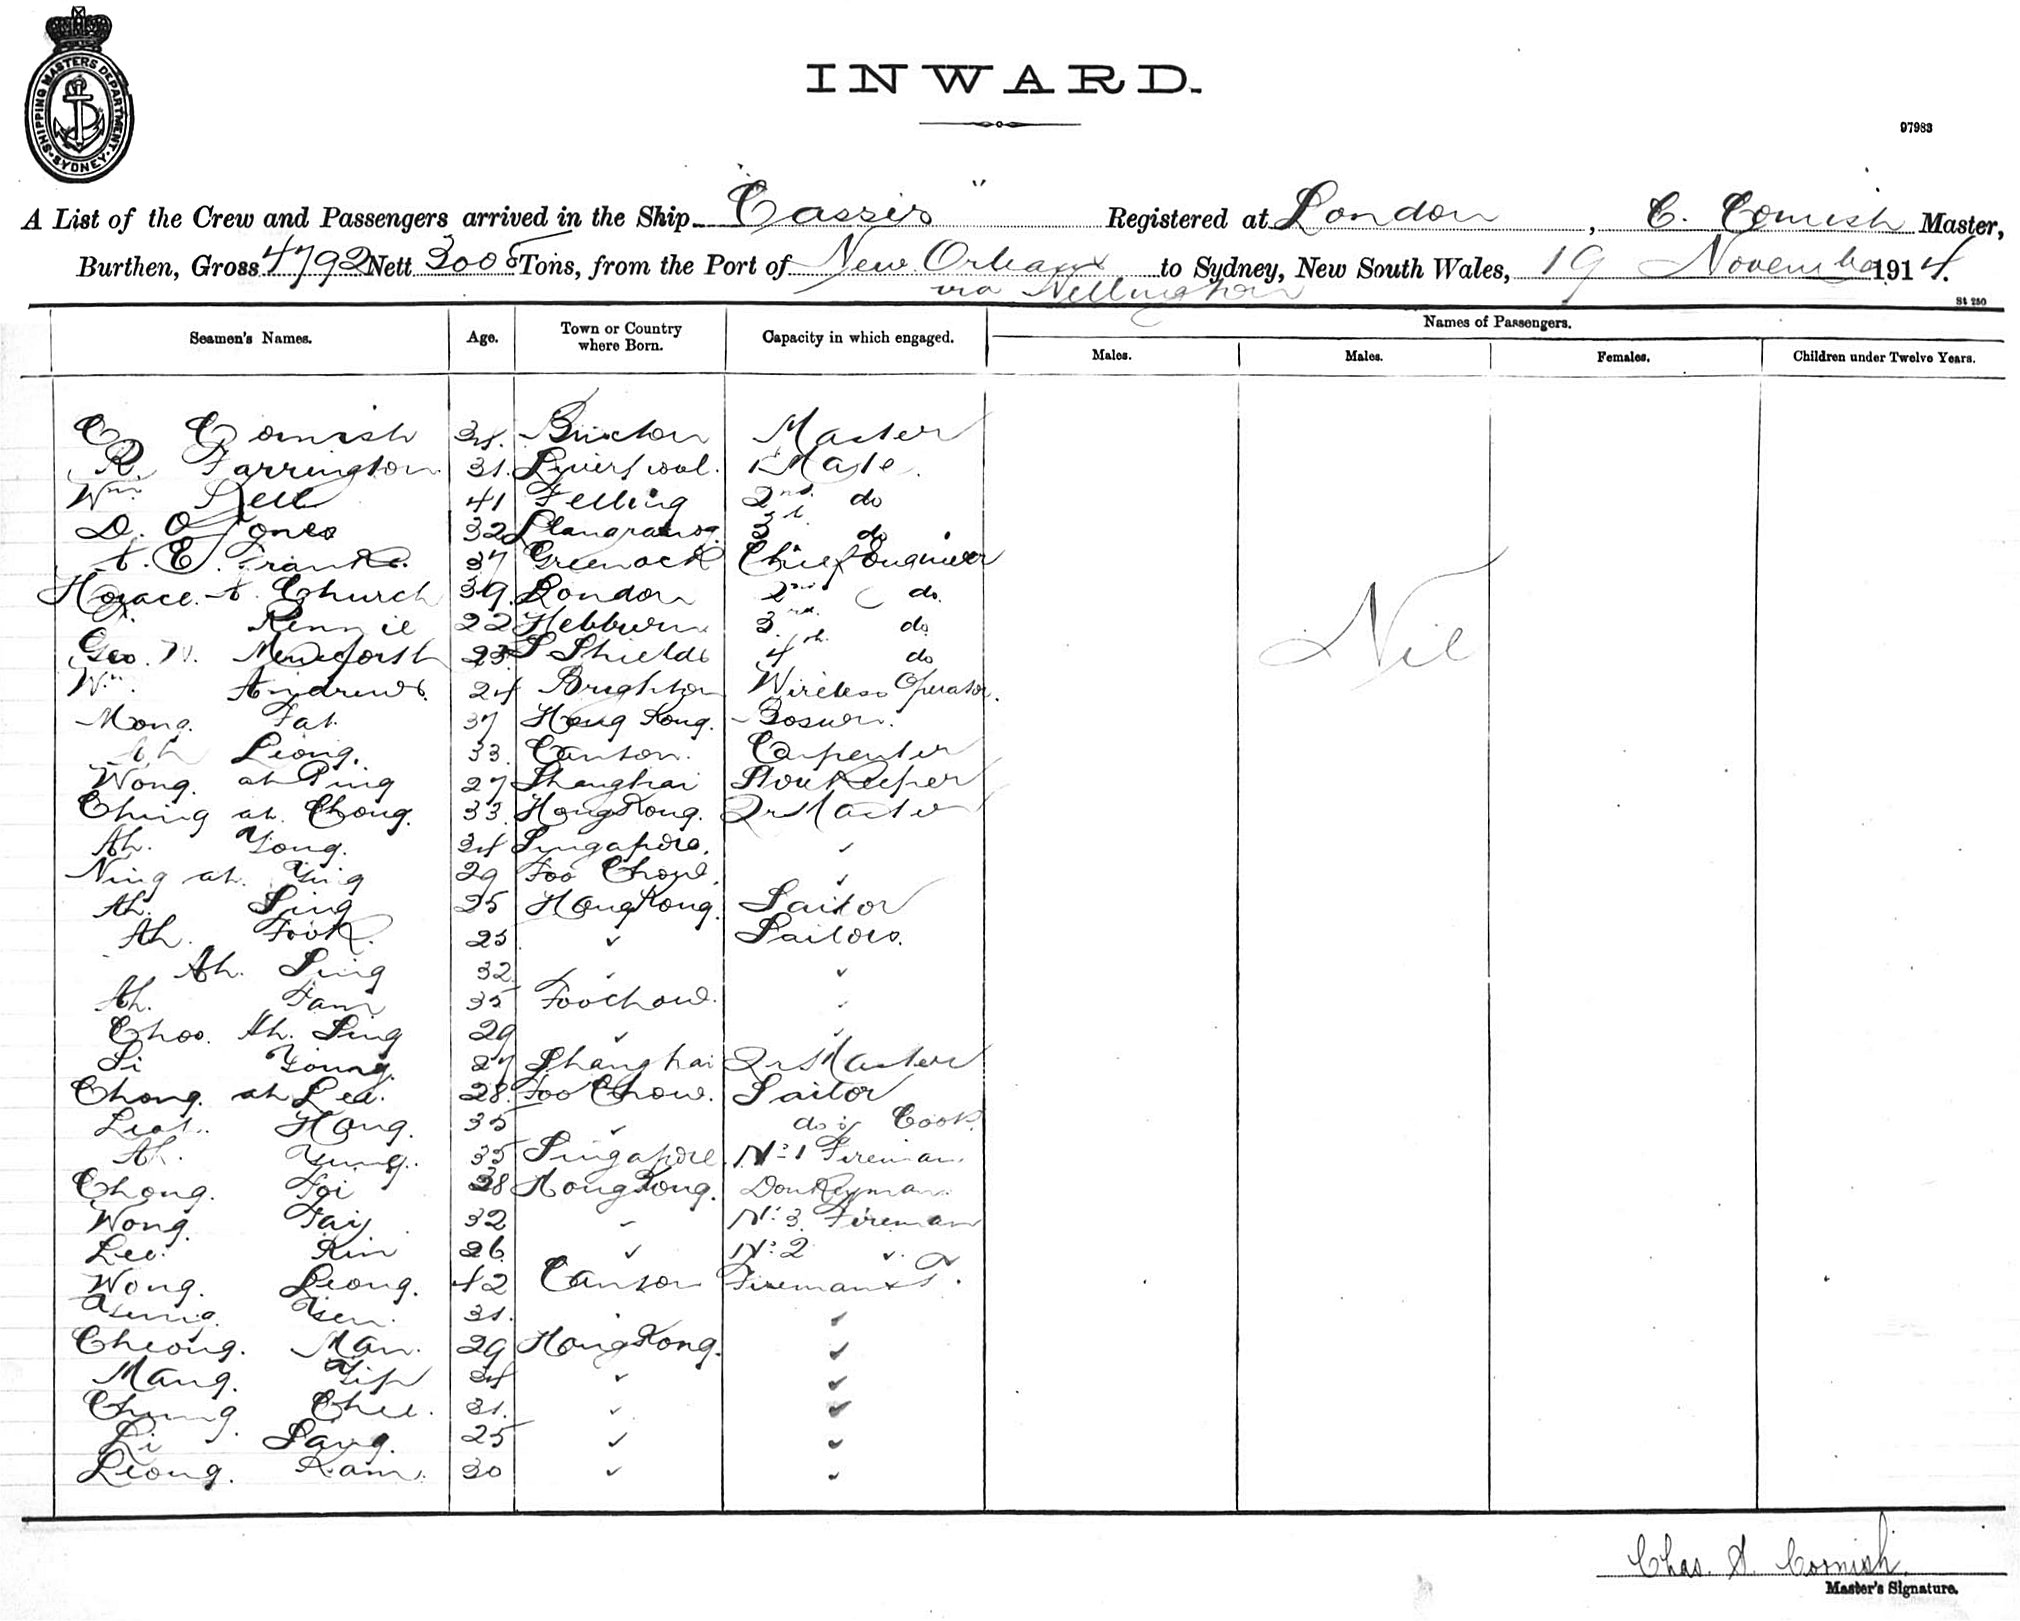 SHIPPING MASTERS DEPARTMENT. SYDNEY
INWARD.
97983
A List of the Crew and Passengers arrived in the Ship "Cassis" Registered at London, C. Cornish Master,
Burthen, Gross 4792 Nett 3005 Tons, from the Port of New Orleans to Sydney, New South Wales, 19 November 1914.
via Wellington
St 250
Seamen's Names. Age. Town or Country where Born. Capacity in which engaged. Names of Passengers.
Males. Males. Females. Children under Twelve Years.
C Cornish 34. Brixton Master
R. Farrington 31. Liverpool. 1 Mate.
Wm Dell 41 Felling 2nd. do
D. O Jones 32 3d do
A. E. Franks. 37 Greenock Chief Engineer
Horace. A. Church 39. London 2nd do.
Rennie 22 Hebburn 3rd. do.
Geo. W. 23 S Shields 4th. do
Wm. Andrews. 24 Brighton Wireless Operator.
Mong. Fat. 37 Hong Kong. Bosun.
Ah Leong. 33. Canton. Carpenter
Wong. ah Ping 27 Shanghai Storekeeper
Ching ah. Chong. 33. Hong Kong. Qr Master
Ah. Yong. 34 Singapore. ✓
Ning ah. Ying 29 Foo Chow. ✓
Ah. Sing 25 Hong Kong. Sailor
Ah. Fook. 25 ✓ Sailors.
Ah. Sing 32 ✓ ✓
Ah. Fam 35 Foochow. ✓
Choo. Ah. Sing 29 ✓ ✓
Si Young. 27 Shanghai Qr Master
Chong. ah Lee. 28. Foo Chow. Sailor
Hong. 35 ✓ do & Cook.
Ah. Yung. 35 Singapore. No 1 Fireman.
Chong. Foi 38 Hong Kong. Donkeyman.
Wong. Fay 32 ✓ No 3. Fireman
Lee. Kin 26 ✓ No 2 ✓.
Wong. Leong. 42 Canton Fireman & T.
Yen. 31. ✓
Cheong. Man. 29 Hong Kong. ✓
Mang. Yip 34 ✓ ✓
Chung. Chee. 31. ✓ ✓
Li Sang. 25 ✓ ✓
Leong. Kam. 30 ✓ ✓
Nil
Chas. A. Cornish.
Master's Signature.